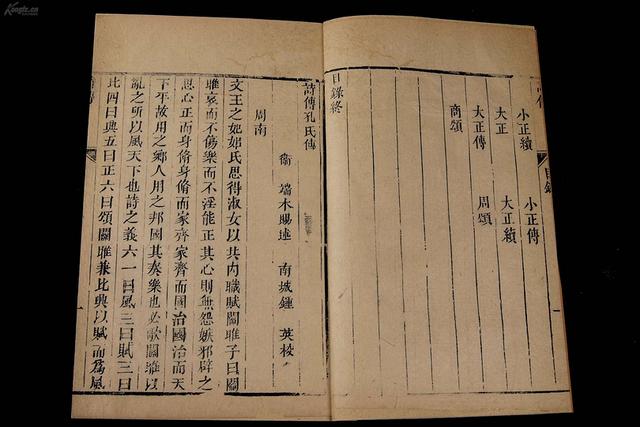 Kongfz.cn
目錄
一
小正續　小正傳
大正　大正續
大正傳　周頌
商頌
目錄終
詩傳孔氏傳
衛　端木賜述　南城鍾　英校
周南
文王之妃姒氏思得淑女以共內職賦關雎子曰關
雎哀而不傷樂而不淫能正其心則無怨嫉邪辟之
思心正而身脩身脩而家齊家齊而國治國治而天
下平故用之鄉人用之邦國其奏樂也必歌關雎以
亂之所以風天下也詩之義六一曰風二曰賦三曰
比四曰興五曰正六曰頌關雎兼比興以賦而爲風